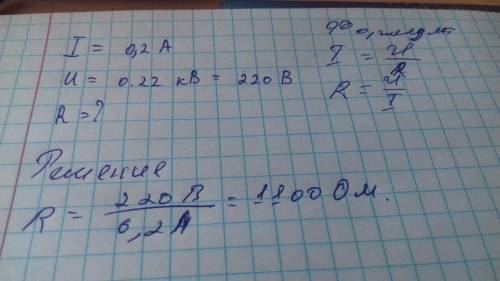 I = 0,2 А
U = 0.22 кВ = 220 В
R = ?
I = U/R
R = U/I
Решение
R = 220 В / 0,2 А = 1100 Ом.